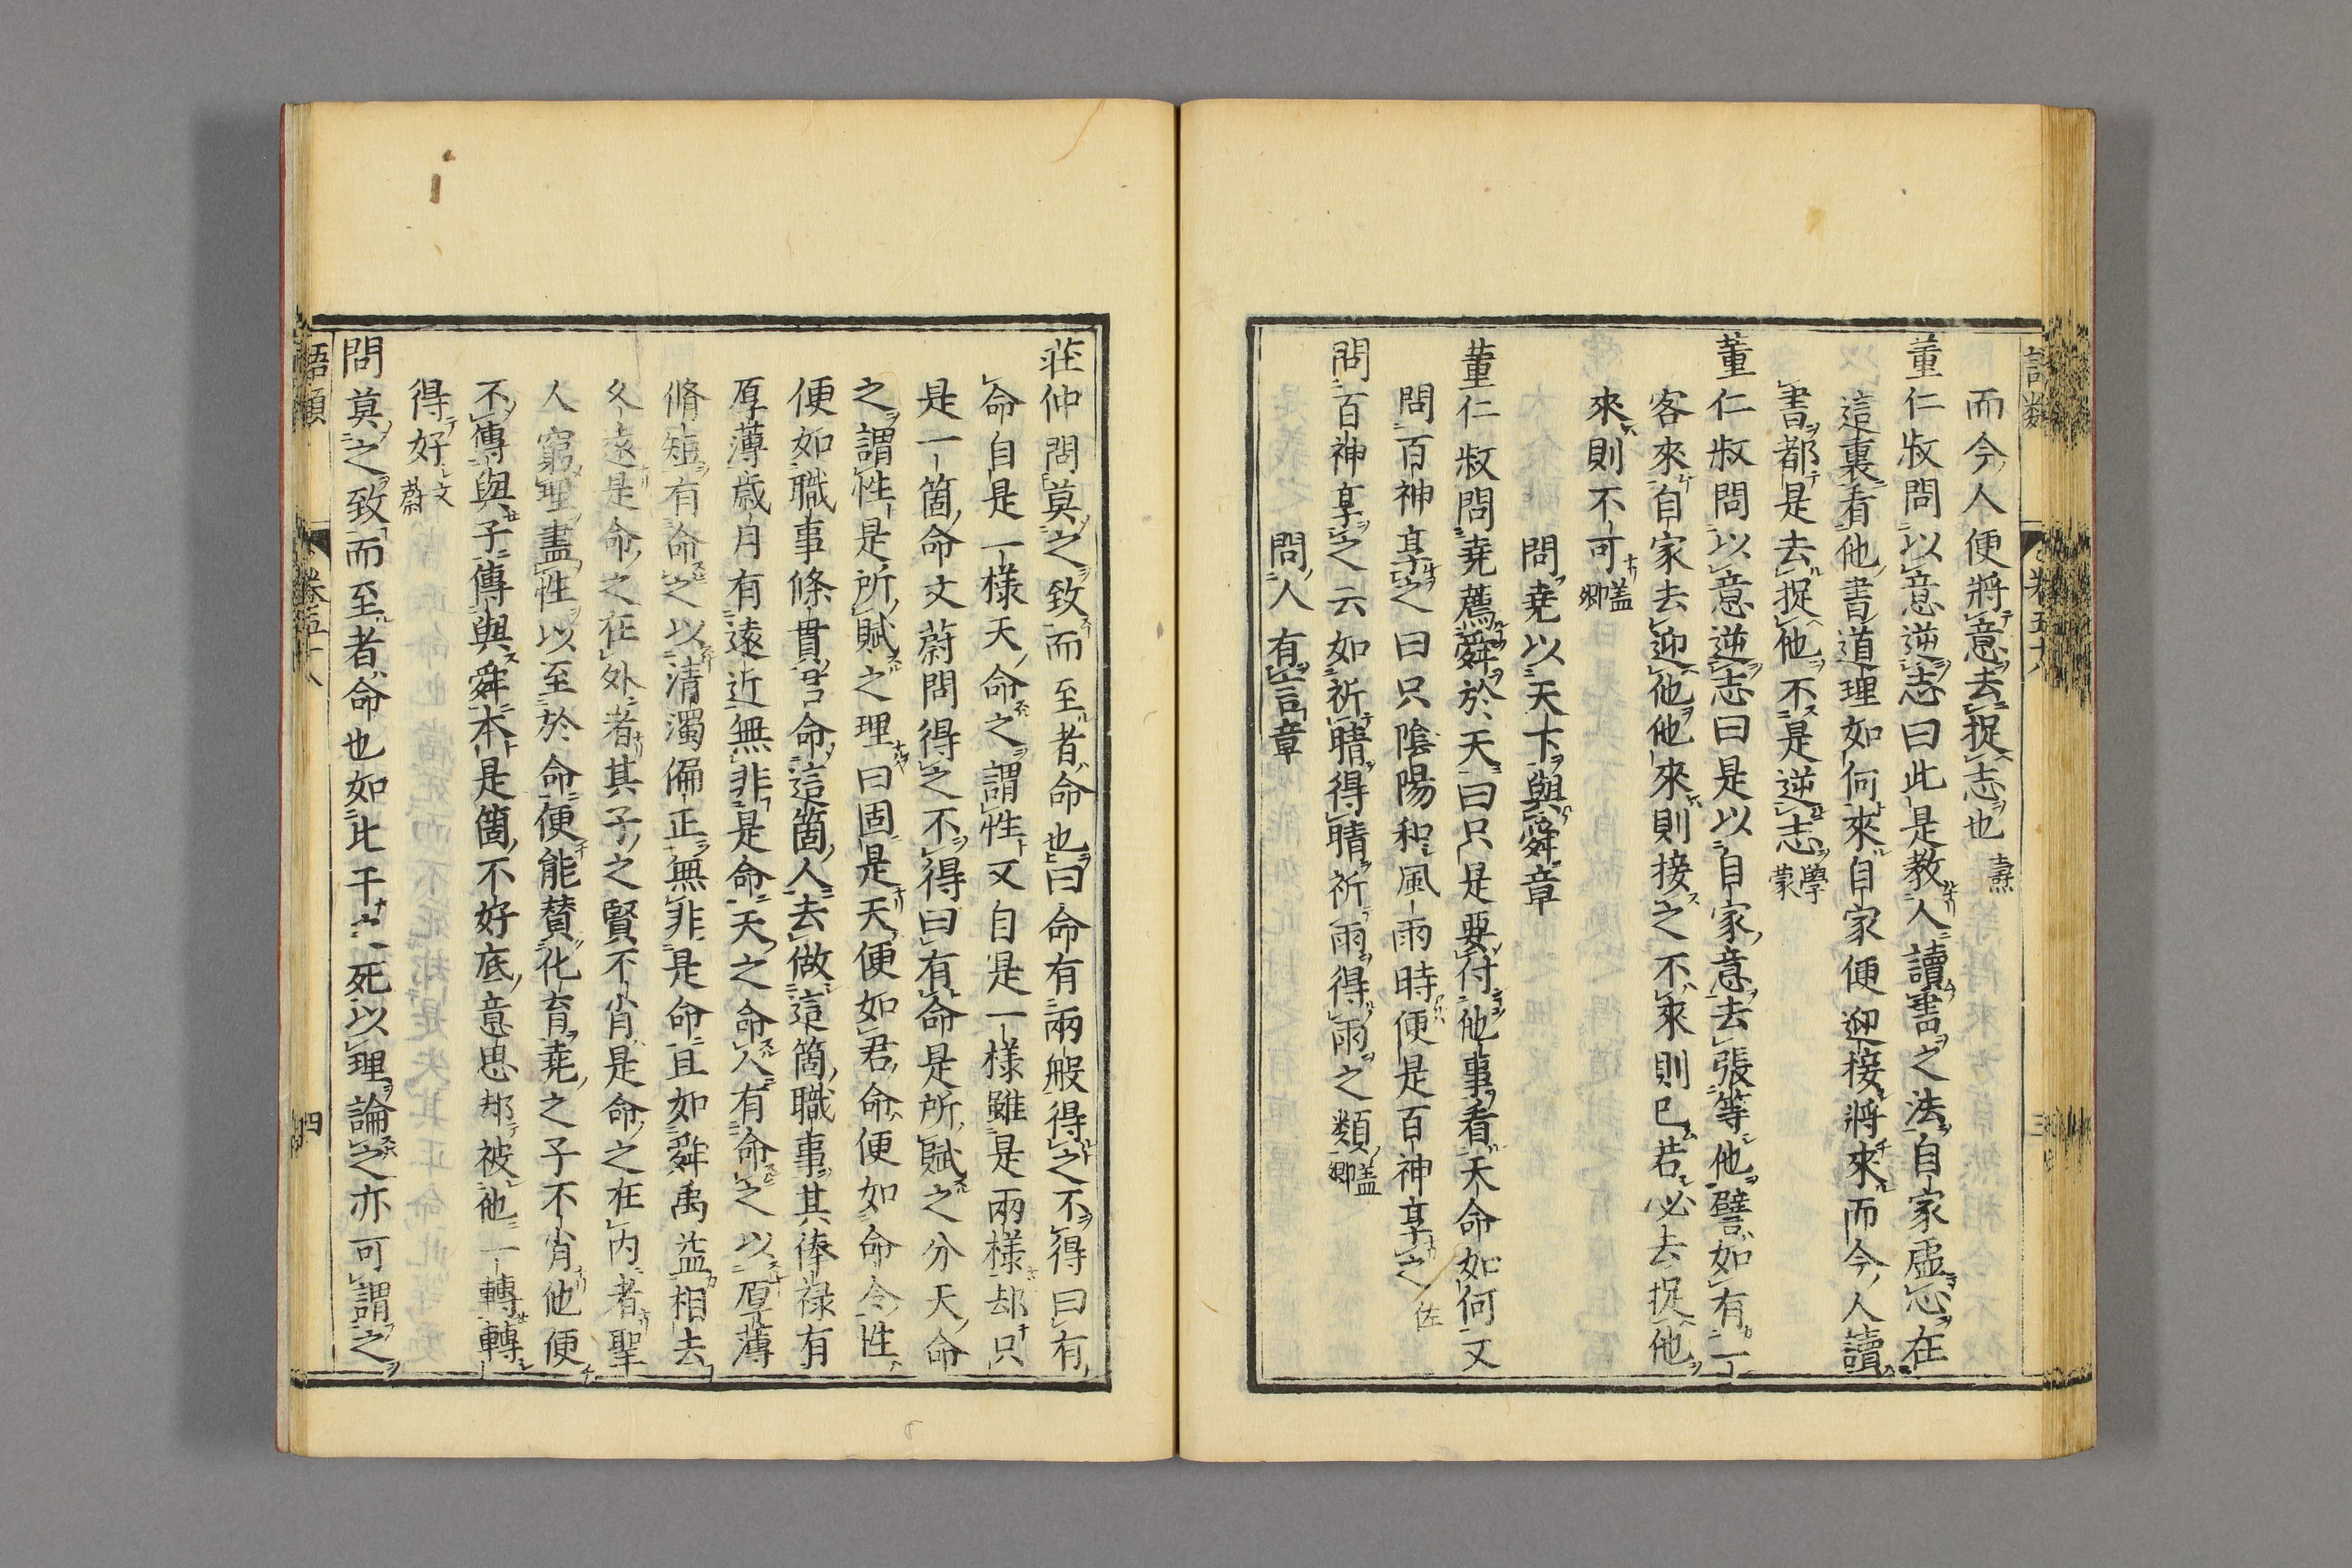 而今人便將意去捉志也 壽
董仁叔問以意逆志曰此是教人讀書之法自家虛心在
這裏看他書道理如何來自家便迎接將來而今人讀
書都是去捉他不是逆志 學蒙
董仁叔問以意逆志曰是以自家意去張等他譬如有一
客來自家去迎他他來則接之不來則已若必去捉他
來則不可 蓋卿
問堯以天下與舜章
董仁叔問堯薦舜於天曰只是要付他事看天命如何又
問百神享之曰只陰陽和風雨時便是百神享之 佐
問百神享之云如祈晴得晴祈雨得雨之類 蓋卿
問人有言章
卷五十八
三
莊仲問莫之致而至者命也曰命有兩般得之不得曰有
命自是一樣天命之謂性又自是一樣雖是兩樣却只
是一箇命文蔚問得之不得曰有命是所賦之分天命
之謂性是所賦之理曰固是天便如君命便如命令性
便如職事條貫君命這箇人去做這箇職事其俸祿有
厚薄歲月有遠近無非是命天之命人有命之以厚薄
脩短有命之以清濁偏正無非是命且如舜禹益相去
久遠是命之在外者其子之賢不肖是命之在內者聖
人窮理盡性以至於命便能贊化育堯之子不肖他便
不傳與子傳與舜本是箇不好底意思却被他一轉轉
得好 文蔚
問莫之致而至者命也如比干之死以理論之亦可謂之
語類
卷五十八
四